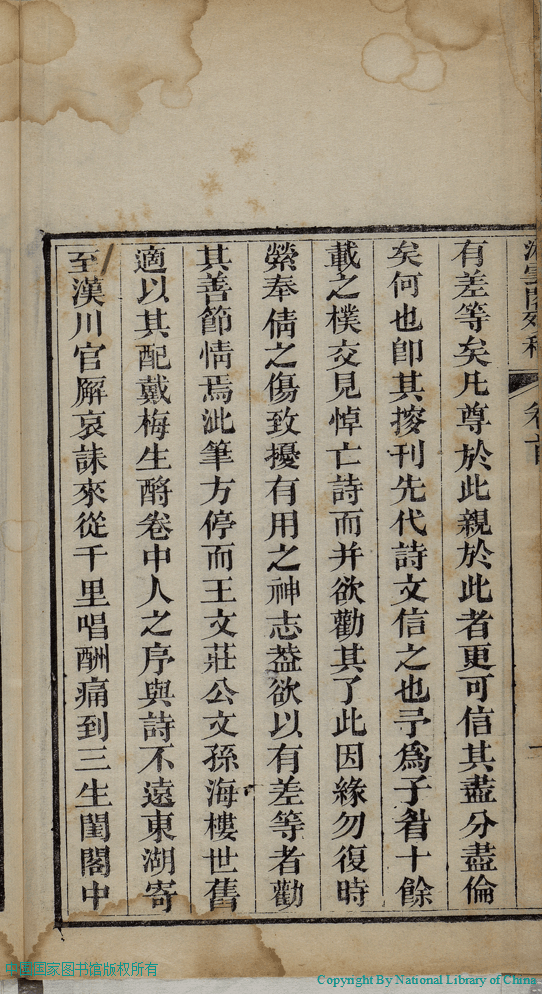 卷首
有差等矣凡尊於此親於此者更可信其盡分盡倫
矣何也卽其擬刊先代詩文信之也予爲子耆十餘
載之樸交見悼亡詩而并欲勸其了此因緣勿復時
縈奉倩之傷致擾有用之神志葢欲以有差等者勸
其善節情焉泚筆方停而王文莊公文孫海樓世舊
適以其配戴梅生酹卷中人之序與詩不遠東湖寄
至漢川官廨哀誄來從千里唱酬痛到三生閨閣中
中国国家图书馆版权所有
Copyright By National Library of China